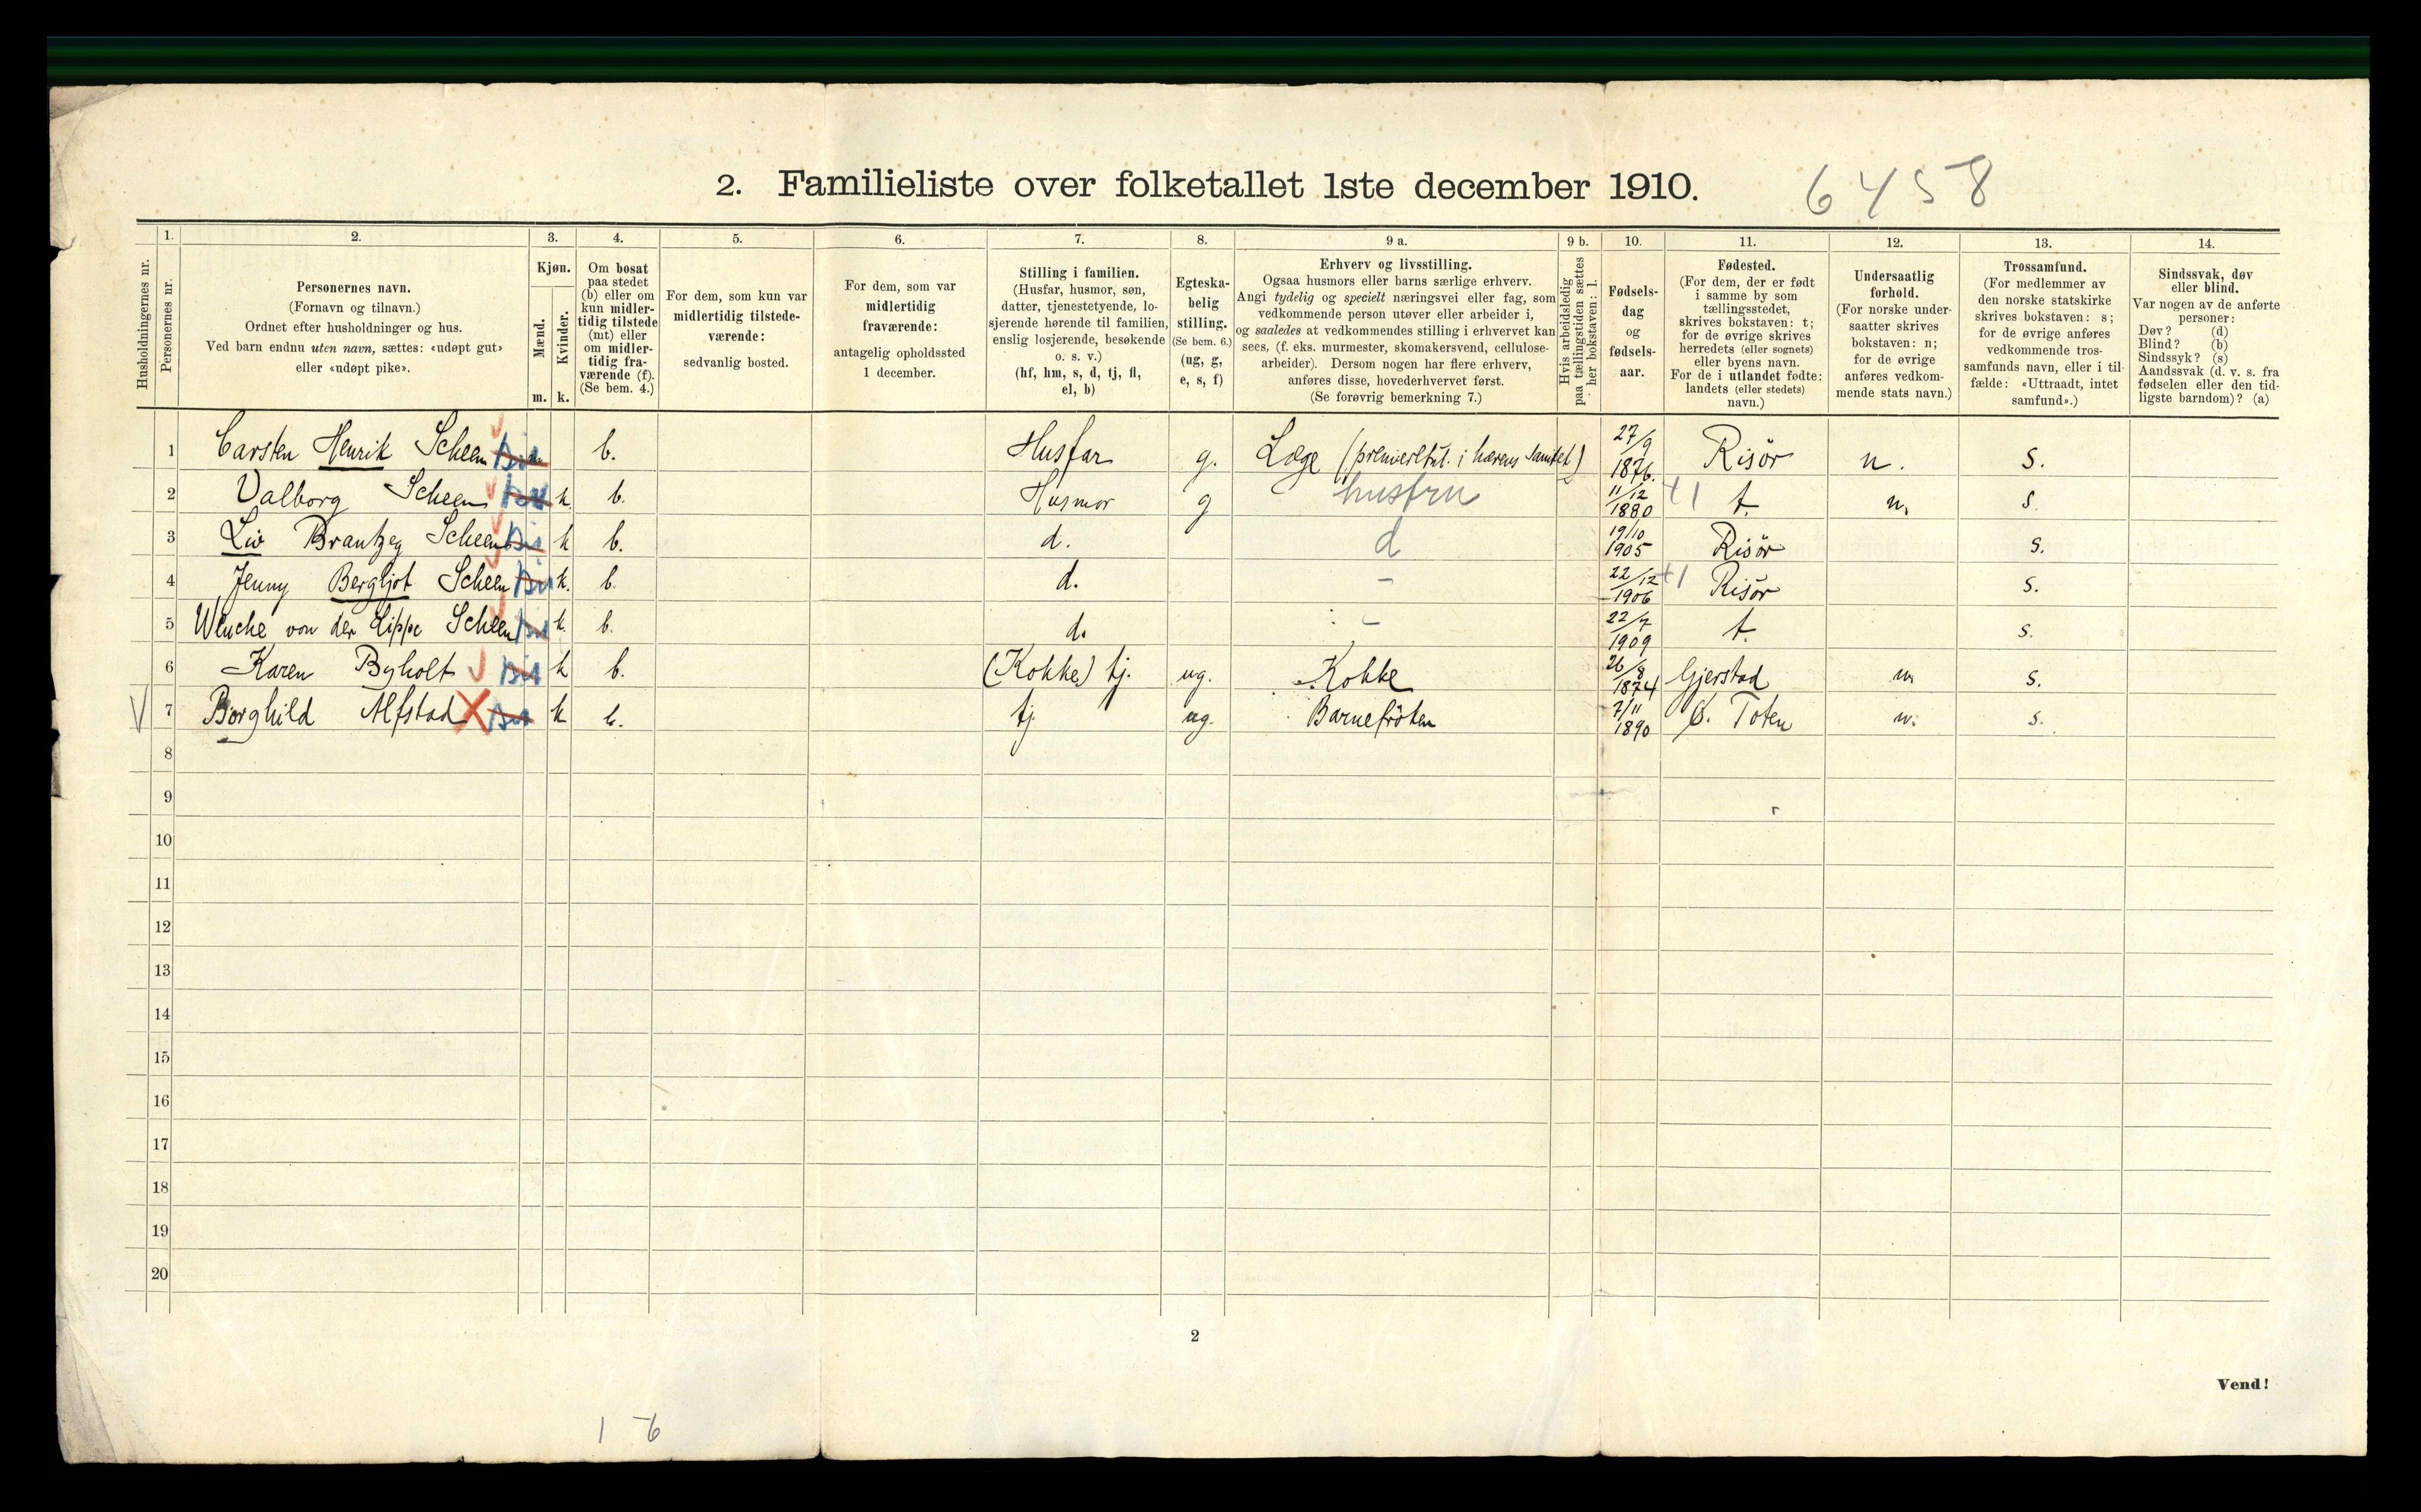 2. Familieliste over folketallet 1ste december 1910.
6458
Husholdningernes nr.
1.
Personernes nr.
2.
Personernes navn.
(Fornavn og tilnavn.)
Ordnet efter husholdninger og hus.
Ved barn endnu uten navn, sættes: «udøpt gut»
eller «udøpt pike».
3.
Kjøn.
Mænd.
Kvinder.
m. k.
4.
Om bosat
paa stedet
(b) eller om
kun midler-
tidig tilstede
(mt) eller
om midler-
tidig fra-
værende (f).
(Se bem. 4.)
5.
For dem, som kun var
midlertidig tilstede-
værende:
sedvanlig bosted.
6.
For dem, som var
midlertidig
fraværende:
antagelig opholdssted
1 december.
7.
Stilling i familien.
(Husfar, husmor, søn,
datter, tjenestetyende, lo-
sjerende hørende til familien,
enslig losjerende, besøkende
o. s. v.)
(hf, hm, s, d, tj, fl,
el, b)
8.
Egteska-
belig
stilling.
(Se bem. 6.)
(ug, g,
e, s, f)
9 a.
Erhverv og livsstilling.
Ogsaa husmors eller barns særlige erhverv.
Angi tydelig og specielt næringsvei eller fag, som
vedkommende person utøver eller arbeider i,
og saaledes at vedkommendes stilling i erhvervet kan
sees, (f. eks. murmester, skomakersvend, cellulose-
arbeider). Dersom nogen har flere erhverv,
anføres disse, hovederhvervet først.
(Se forøvrig bemerkning 7.)
9 b.
Hvis arbeidsledig
paa tællingstiden sættes
her bokstaven: l.
10.
Fødsels-
dag
og
fødsels-
aar.
11.
Fødested.
(For dem, der er født
i samme by som
tællingsstedet,
skrives bokstaven: t;
for de øvrige skrives
herredets (eller sognets)
eller byens navn.
For de i utlandet fødte:
landets (eller stedets)
navn.)
12.
Undersaatlig
forhold.
(For norske under-
saatter skrives
bokstaven: n;
for de øvrige
anføres vedkom-
mende stats navn.)
13.
Trossamfund.
(For medlemmer av
den norske statskirke
skrives bokstaven: s;
for de øvrige anføres
vedkommende tros-
samfunds navn, eller i til-
fælde: «Uttraadt, intet
samfund».)
14.
Sindssvak, døv
eller blind.
Var nogen av de anførte
personer:
Døv? (d)
Blind? (b)
Sindssyk? (s)
Aandssvak (d. v. s. fra
fødselen eller den tid-
ligste barndom)? (a)
1 Carsten Henrik Scheen m b. Husfar g. Læge (premierltnt. i hærens Sanitet) 27/9 1876. Risör n. s.
2 Valborg Scheen k. b. Husmor g hustru 11/12 1880 t. n. s.
3 Liv Brantzeg Scheen k b. d. d 19/10 1905 Risör s.
4 Jenny Bergljot Scheen k. b. d. - 22/12 1906 Risör s.
5 Wenche von der Lippe Scheen k. b. d. - 22/7 1909 t. s.
6 Karen Byholt k b. (Kokke) tj. ug. Kokke 26/8 1874 Gjerstad n. s.
7 Borghild Alfstad k b. tj. ug. Barnefröken 7/11 1890 Ø. Toten n. s.
8
9
10
11
12
13
14
15
16
17
18
19
20
2
Vend!
1 - 6